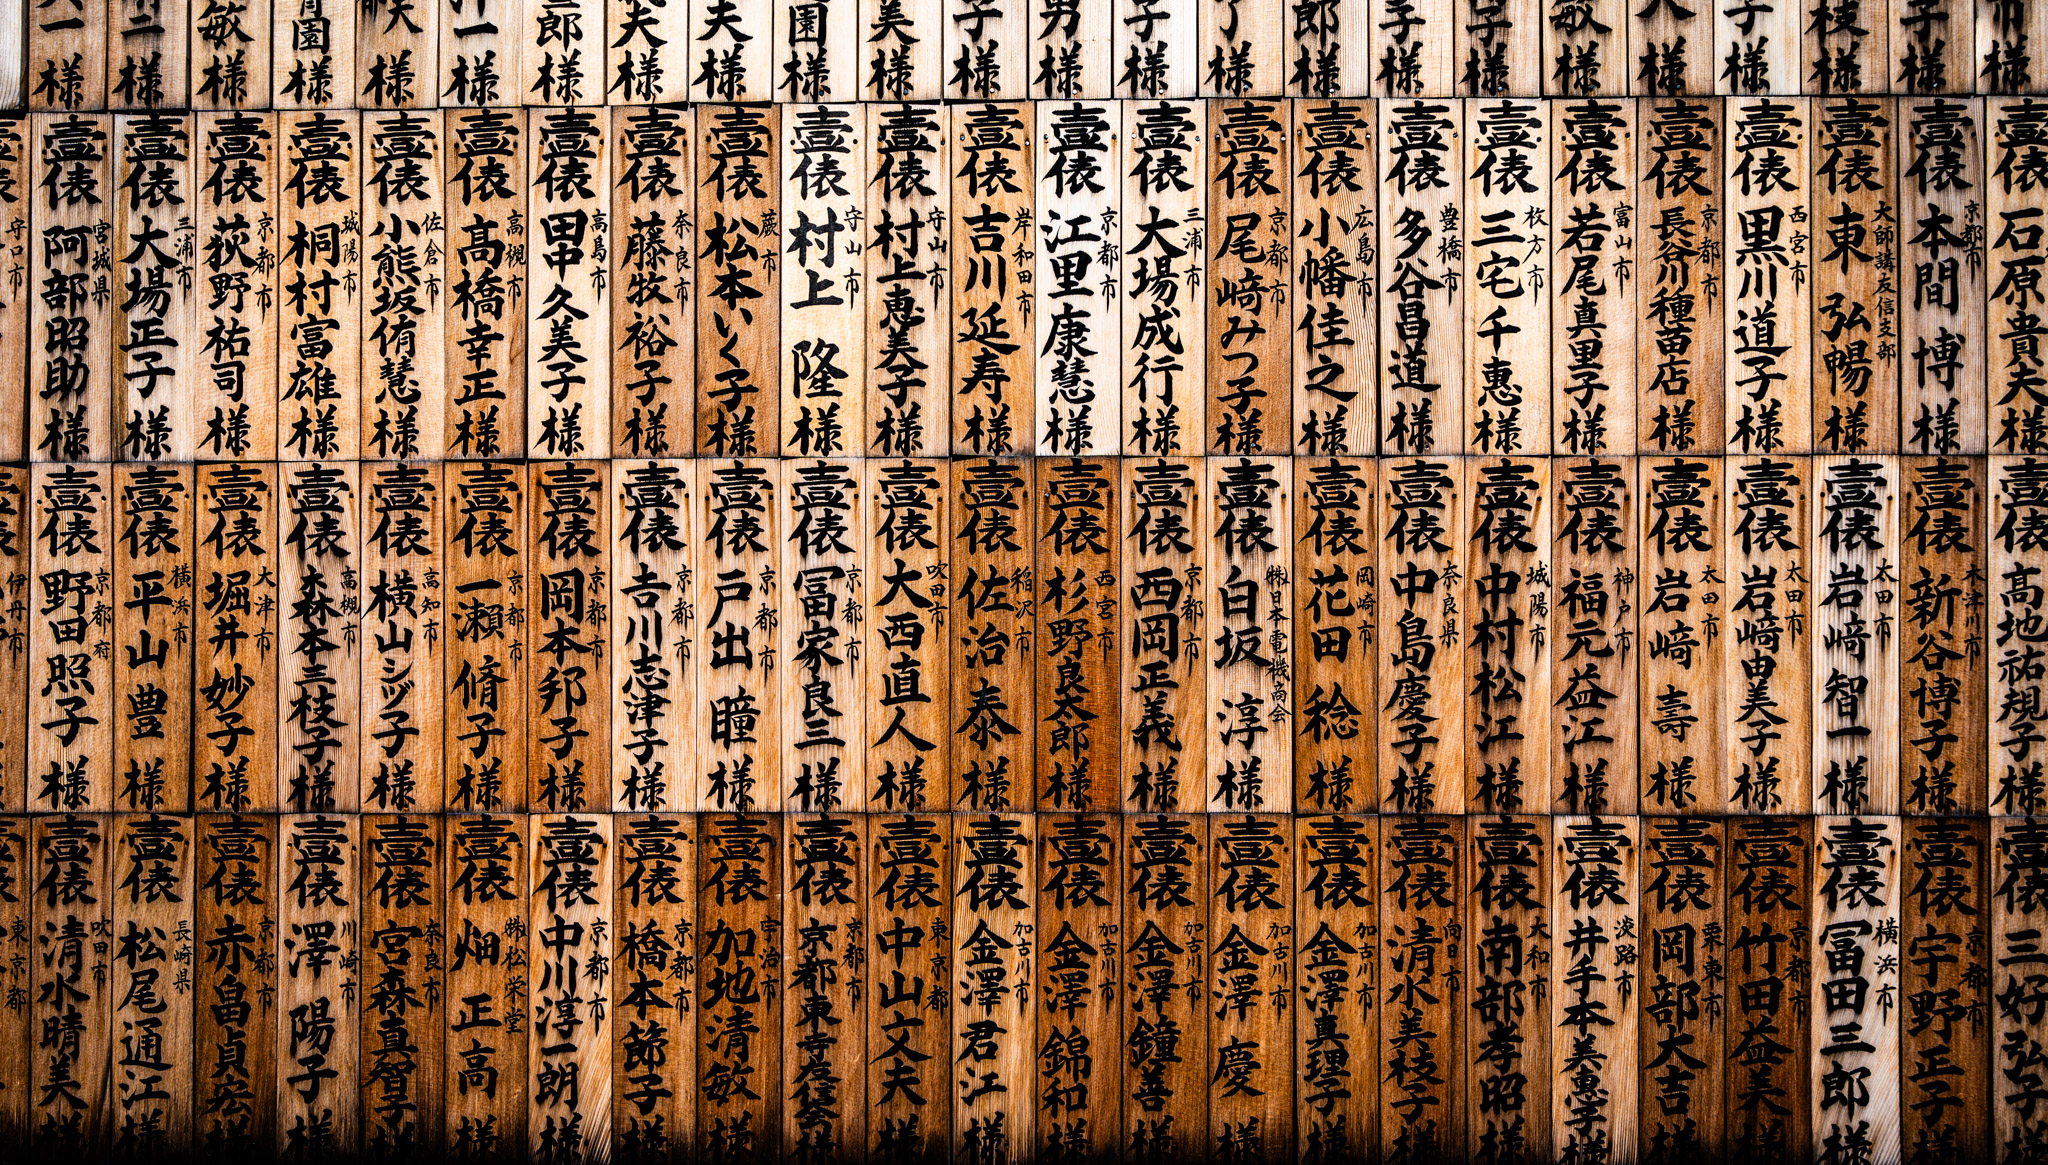 子様
枝様
子様
敏様
子様
郎様
子様
男様
子様
美様
園様
夫様
夫様
郎様
一様
園様
敏様
二様
一様
壹俵 石原貴夫様
壹俵 京都市 本間 博様
壹俵 大師講友信支部 東 弘暢様
壹俵 西宮市 黒川道子様
壹俵 京都市 長谷川種苗店様
壹俵 富山市 若尾真里子様
壹俵 枚方市 三宅千惠様
壹俵 豊橋市 多谷昌道様
壹俵 広島市 小幡佳之様
壹俵 京都市 尾﨑みつ子様
壹俵 三浦市 大場成行様
壹俵 京都市 江里康慧様
壹俵 岸和田市 吉川延寿様
壹俵 守山市 村上惠美子様
壹俵 守山市 村上 隆様
壹俵 蕨市 松本いく子様
壹俵 奈良市 藤牧裕子様
壹俵 高島市 田中久美子様
壹俵 高槻市 髙橋幸正様
壹俵 佐倉市 小熊坂侑慧様
壹俵 城陽市 桐村富雄様
壹俵 京都市 荻野祐司様
壹俵 三浦市 大場正子様
壹俵 宮城県 阿部昭助様
守口市
壹俵 高地祐規子様
壹俵 木津川市 新谷博子様
壹俵 太田市 岩﨑智一様
壹俵 太田市 岩﨑由美子様
壹俵 太田市 岩﨑 壽様
壹俵 神戸市 福元益江様
壹俵 城陽市 中村松江様
壹俵 奈良県 中島慶子様
壹俵 岡崎市 花田 稔様
壹俵 ㈱日本電機商会 白坂 淳様
壹俵 京都市 西岡正義様
壹俵 西宮市 杉野良太郎様
壹俵 稲沢市 佐治 泰様
壹俵 吹田市 大西直人様
壹俵 京都市 冨家良三様
壹俵 京都市 戸出 瞳様
壹俵 京都市 吉川志津子様
壹俵 京都市 岡本邦子様
壹俵 京都市 一瀬脩子様
壹俵 高知市 横山シヅ子様
壹俵 高槻市 森本三枝子様
壹俵 大津市 堀井妙子様
壹俵 横浜市 平山 豊様
壹俵 京都府 野田照子様
伊丹市
壹俵 三好弘子
壹俵 京都市 宇野正子様
壹俵 横浜市 冨田三郎様
壹俵 京都市 竹田益美様
壹俵 栗東市 岡部大吉様
壹俵 淡路市 井手本美惠子様
壹俵 大和市 南部孝昭様
壹俵 向日市 清水美枝子様
壹俵 加古川市 金澤真理子様
壹俵 加古川市 金澤 慶様
壹俵 加古川市 金澤鐘善様
壹俵 加古川市 金澤錦和様
壹俵 加古川市 金澤君江様
壹俵 東京都 中山文夫様
壹俵 京都市 京都東寺友信会様
壹俵 宇治市 加地清敏様
壹俵 京都市 橋本節子様
壹俵 京都市 中川淳一朗様
壹俵 ㈱松栄堂 畑 正高様
壹俵 奈良市 宮森真智子様
壹俵 川崎市 澤 陽子様
壹俵 京都市 赤畠貞宏様
壹俵 長崎県 松尾通江様
壹俵 吹田市 清水晴美様
東京都